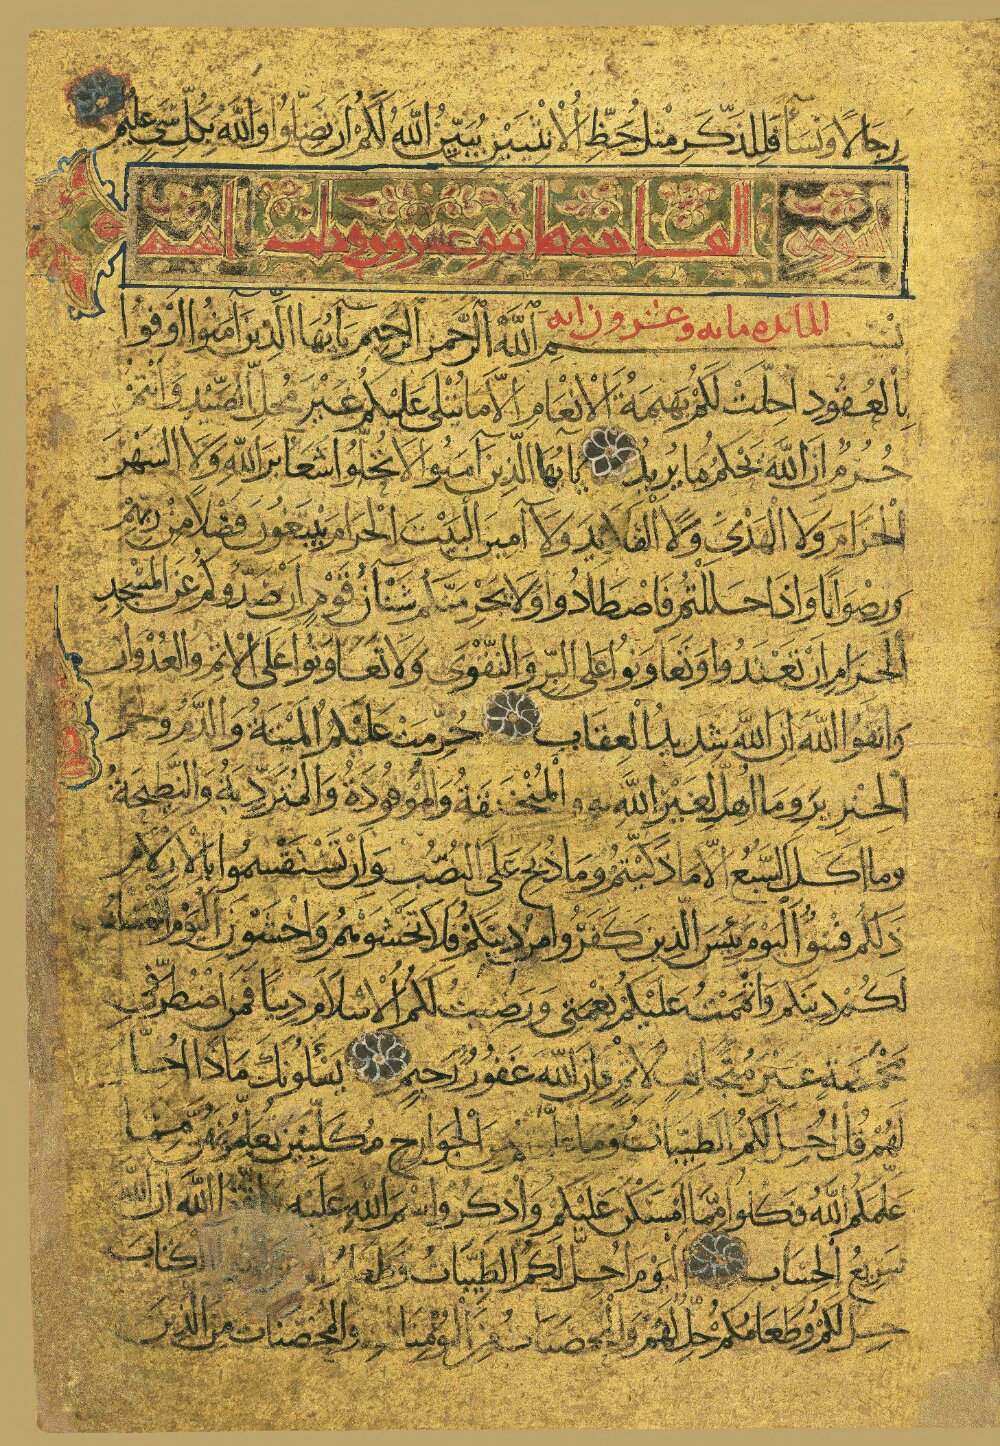 رجالا ونسآ فللذكر مثل حظ الانثيين يبين الله لكم ان تضلوا والله بكل شى عليم
سورة المائده مائه وعشرو
المائده مايه وعشرون ايه
بسم الله الرحمن الرحيم يآيها الذين آمنوا اوفوا
بالعقود احلت لكم بهيمة الانعام الا ما يتلى عليكم غير محلى الصيد وانتم
حرم ان الله يحكم ما يريد يايها الذين آمنوا لا تحلوا شعاير الله ولا الشهر
الحرام ولا الهدى ولا القلايد ولا آمين البيت الحرام يبتغون فضلا من ربهم
ورضوانا واذا حللتم فاصطادوا ولا يجرمنكم شنآن قوم ان صدوكم عن المسجد
الحرام ان تعتدوا وتعاونوا على البر والتقوى ولا تعاونوا على الاثم والعدوان
واتقوا الله ان الله شديد العقاب حرمت عليكم الميتة والدم ولحم
الخنزير وما اهل لغير الله به والمنخنقة والموقوذة والمتردية والنطيحة
وما اكل السبع الا ما ذكيتم وما ذبح على النصب وان تستقسموا بالازلام
ذلكم فسق اليوم يئس الذين كفروا من دينكم فلا تخشوهم واخشون اليوم اكملت
لكم دينكم واتممت عليكم نعمتى ورضيت لكم الاسلام دينا فمن اضطر فى
مخمصة غير متجانف لاثم فان الله غفور رحيم يسئلونك ماذا احل
لهم قل احل لكم الطيبات وما علمتم من الجوارح مكلبين تعلمونهن مما
علمكم الله فكلوا مما امسكن عليكم واذكروا اسم الله عليه واتقوا الله ان الله
سريع الحساب اليوم احل لكم الطيبات وطعام الكتاب
حل لكم وطعامكم حل لهم والمحصنات من المؤمنات والمحصنات من الذين